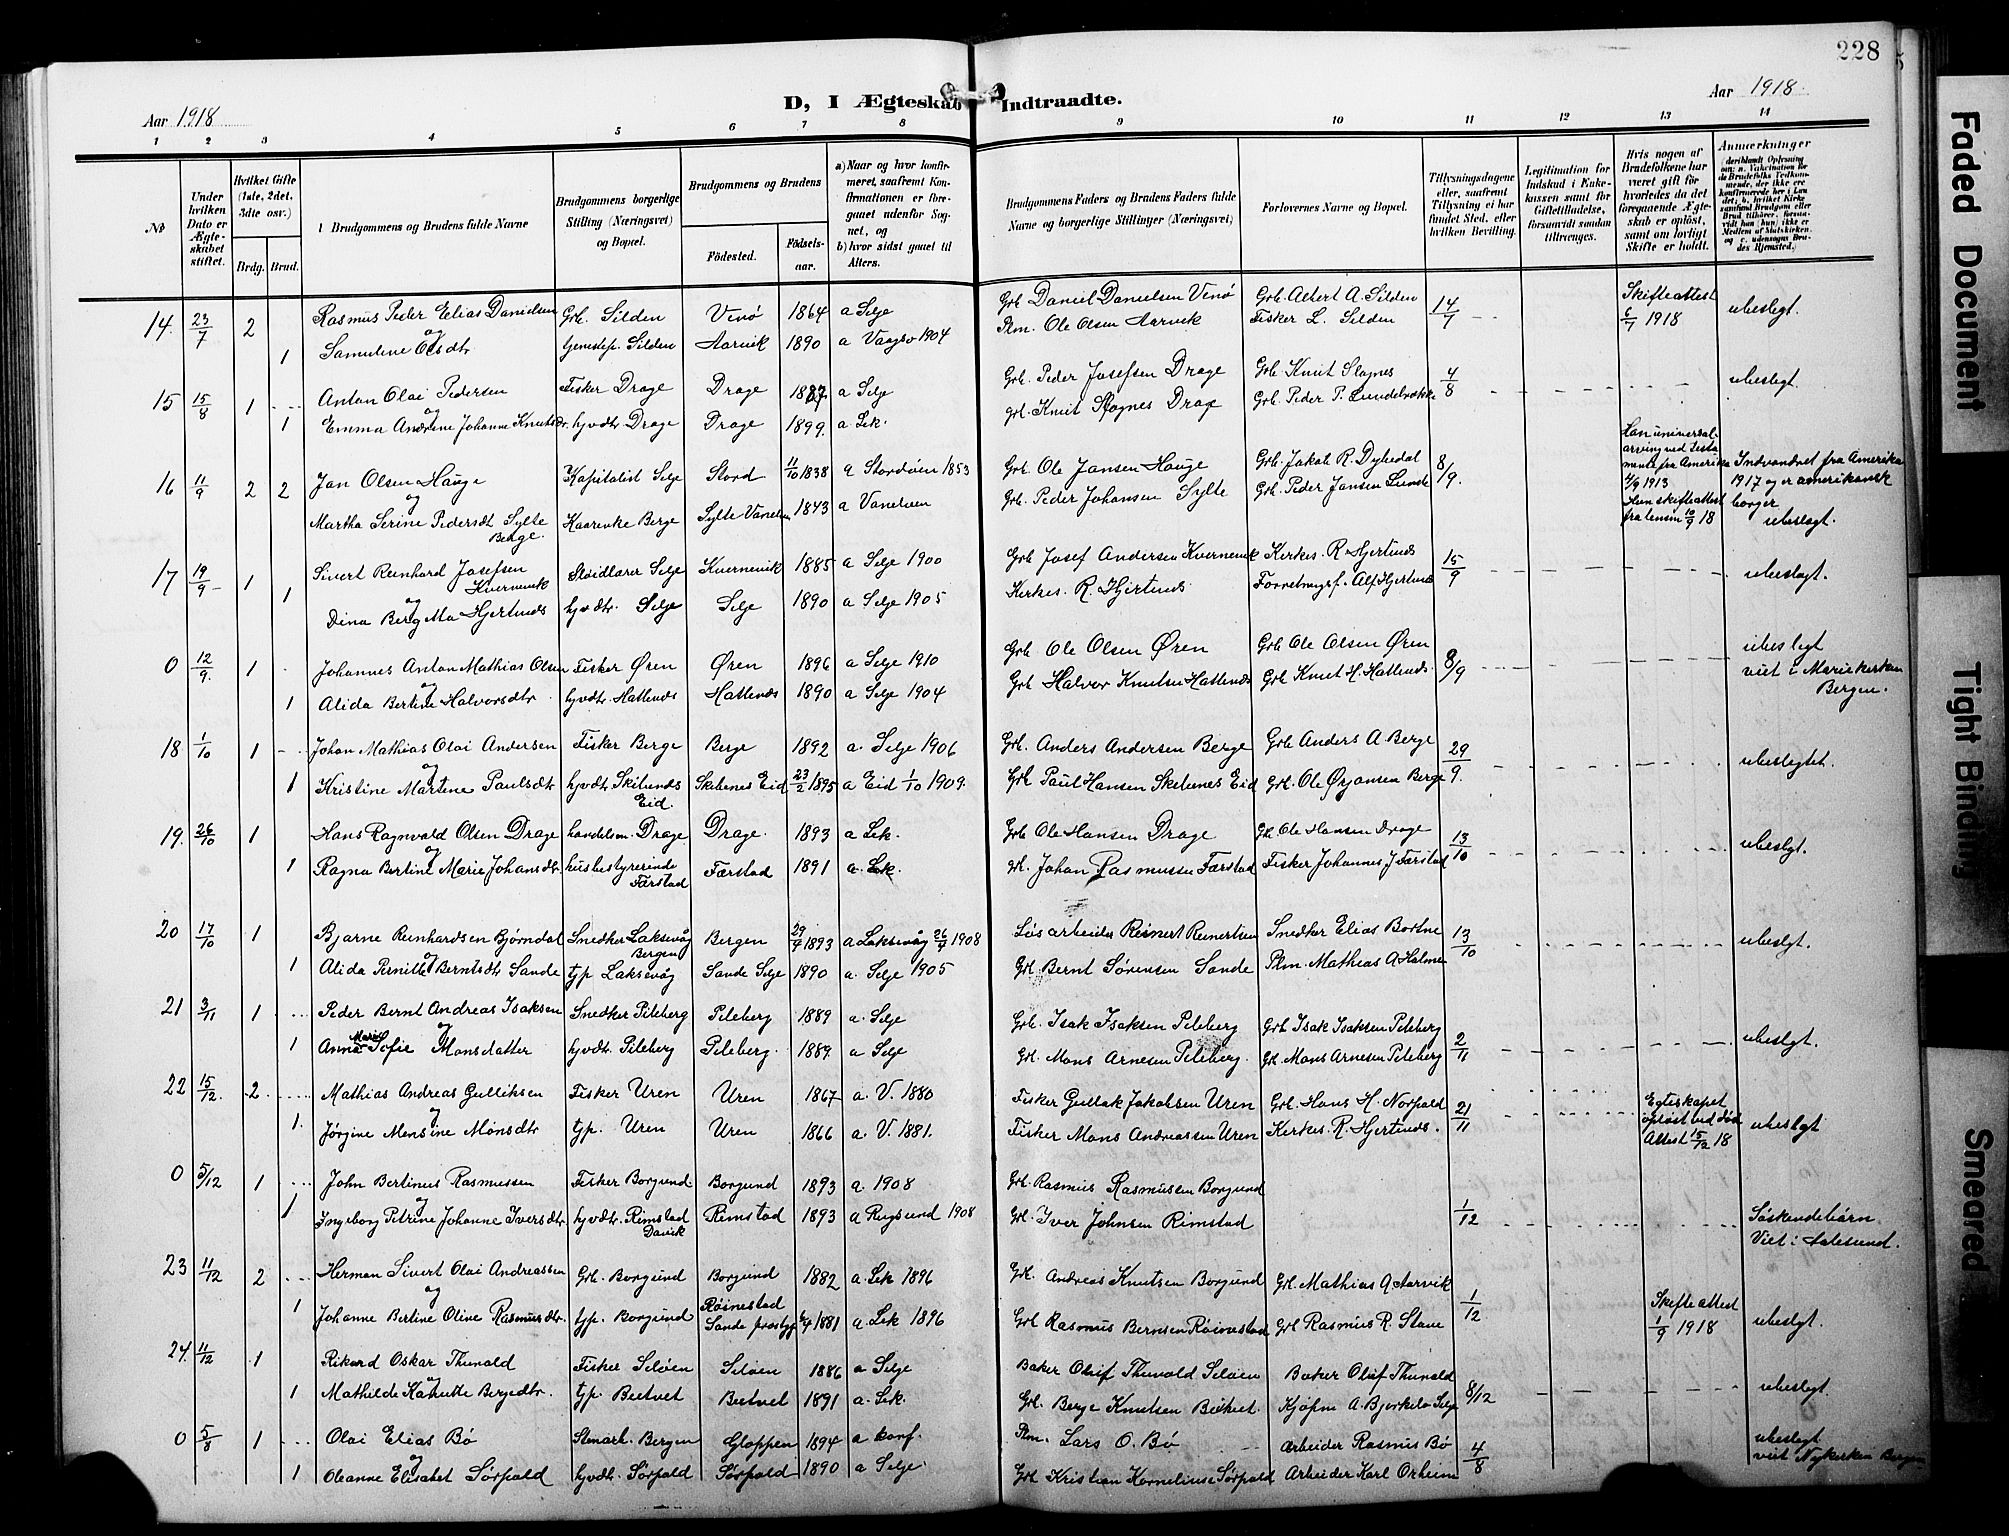 228
D, I Ægteskab Indtraadte.
Aar 1918
Aar 1918.
1 2 3 4 5 6 7 8 9 10 11 12 13 14
№
Under hvilken Dato er Ægteskabet stiftet.
Hvilket Gifte (1ste, 2det, 3die osv.)
Brdg. Brud.
Brudgommens og Brudens fulde Navne
Brudgommens borgerlige Stilling (Næringsvei) og Bopæl.
Brudgommens og Brudens
Födested. Födselsaar.
a) Naar og hvor konfirmeret, saafremt Konfirmationen er foregaaet udenfor Sognet, og
b) hvor sidst gaaet til Alters.
Brudgommens Faders og Brudens Faders fulde Navne og borgerlige Stillinger (Næringsvei)
Forlovernes Navne og Bopæl.
Tillysningsdagene eller, saafremt Tillysning ei har fundet Sted, efter hvilken Bevilling.
Legitimation for Indskud i Enkekassen samt for Giftetilladelse, forsaavidt saadan tiltrænges.
Hvis nogen af Brudefolkene har været gift før hvorledes da det foregaaende Ægteskab er opløst, samt om lovligt Skifte er holdt.
Anmærkninger
14. 23/7 2 Rasmus Peder Elias Danielsen Grb. Silden Venø 1864 a Selje Grb Daniel Danielsen Venø Grb. Albert A. Silden 14/7 Skifteattest 6/7 1918 ubeslegt.
og
1 Samuline Olsdtr Silden Aarvik 1890 a Vaagsø 1904 Plm. Ole Olsen Aarvik Fisker L. Silden
15 15/8 1 Anton Olai Pedersen Fisker Drage Drage 1887 a Selje Grb. Peder Josefsen Drage Grb. Knut 4/8 ubeslegt.
og
1 Emma Andrine Johanne Knutsdtr. hjvdtr Drage Drage 1899. a Lek. Grb. Knut Drage Grb. Peder P.
16 11/9 2 2 Jan Olsen Hauge Kapitalist Selje Stord 11/10 1838 a Stordøen 1853 Grb. Ole Jansen Hauge Grb. Jakob R. Dyhedal 8/9. Han universalarving ved testamente fra Amerika 4/9 1913 Indvandret fra Amerika 1917 og er amerikansk borger
og
Martha Serine Pedersdt Sylte Berge. Berge Sylte Vanelven 1843 a Vanelven Grb. Peder Johansen Sylte Grb. Peder Jansen Lunde Hun skifteattest fra 10/9 18 ubeslegt.
17 19/9 1 Sivert Reinhard Josefsen Kvernevik Selje Kvernevik 1885 a Selje 1900 Grb Josef Andersen Kvernevik Kirkes. R. Hjertenæs 15/9 ubeslegt.
og
1 Dina Berg Hjertenæs hjvdtr. Selje Selje 1890 a Selje 1905 Kirkes. R. Hjertenæs Alf Hjertenæs
0 12/9. 1 Johannes Anton Mathias Olsen Fisker Øren Øren 1896 a Selje 1910 Grb Ole Olsen Øren Grb Ole Olsen Øren 8/9 ubeslegt
og
1 Alida Bertine Halvorsdtr hjvdtr. Hatlenæs Hatlenæs 1890 a Selje 1904 Grb Halvor Knutsen Hatlenæs Grb Knut H. Hatlenæs. viet i Mariekirken Bergen.
18 1/10 1 Johan Mathias Olai Andersen Fisker Berge Berge 1892 a. Selje 1906 Grb. Anders Andersen Berge Grb Anders A Berge 29/9. ubeslegtet.
og
1 Kristine Martine Paulsdtr hjvdtr Eid. Eid 23/2 1895 a Eid 1/10 1909. Grb Paul Hansen Eid Grb. Ole Berge
19. 26/10 1 Hans Ragnvald Olsen Drage handelsm. Drage Drage. 1893 a Lek. Grb Ole Hansen Drage Grb Ole Hansen Drage 13/10 ubeslgt.
og
1 Ragna Bertine Marie Johansdtr. husbestyrerinde Færstad Færstad 1891 a. Lek. Grb. Johan Rasmussen Færstad Fisker Johannes J Færstad
20 17/10 1 Bjarne Reinhardsen Bjørndal Snedker Laksevåg Bergen Bergen 29/7 1893 a Laksevåg 1908 Løsarbeider Reinert Reinertsen Snedker Elias Bortne 13/10 ubeslgt.
og
1 Alida Pernille Berntsdtr Sande tjp Laksevåg Sande Selje 1890 a. Selje 1905 Grb Bernt Sørensen Sande Plm. Mathias A Holme
21 3/11 1 Peder Bernt Andreas Isaksen Snedker Pileberg Pileberg 1889 a. Selje Grb. Isak Isaksen Pileberg Grb Isak Isaksen Pileberg 2/11 ubeslgt.
og
1 Anna Marie Sofie Monsdatter hjvdtr. Pileberg Pileberg. 1889 a Selje Grb. Mons Arnesen Pileberg. Grb Mons Arnesen Pileberg
22 15/12. 2 Mathias Andreas Gulliksen Fisker Uren Uren 1867 a. V. 1880 Fisker Gullak Jakobsen Uren Grb. Hans H. Norpald 21/11 Egteskapet opløst ved død Attest 15/12 18 ubeslgt
og
1. Jørgine Monsine Monsdtr tjp. Uren Uren 1866 a. V. 1881. Fisker Mons Andreassen Uren Kirkes. R. Hjertenæs.
0 5/12 1 John Bertinus Rasmussen Fisker Borgund Borgund 1893 a. 1908 Grb. Rasmus Rasmussen Borgund 1/12
og
1 Ingeborg Petrine Johanne Iversdtr hjvdtr. Rimstad Davik Rimstad 1893 a Rugsund 1908 Grb. Iver Johnsen Rimstad Søskendebarn. Viet i Aalesund.
23 11/12 2 Herman Sivert Olai Andreassen Grb. Borgund Borgund 1882 a. Lek 1896 Grb. Andreas Knutsen Borgund Grb. Mathias A Aarvik 1/12 Skifteattest 1/9 1918 ubeslgt.
og
1 Johanne Bertine Oline Rasmusdtr. tjp. Borgund Røinestad Sande prestgj 1881 a. Lek 1896 Grb Rasmus Berntsen Røinestad Grb Rasmus R. Stave
24. 11/12 1 Rikard Oskar Thunold Fisker Seløen Seløen 1886 a Selje Baker Oluf Thunold Seløen Baker Oluf Thunold 8/12 ubeslegt
og
1 Mathilde Kanutte Bergedtr. tjp. 1891 a. Lek. Grb. Berge Knutsen Kjøpm A. Bjørkelo Selje
0 5/8 1 Olai Elias Bø Bergen Gloppen 1894 a konf. Plm. Lars O. Bø arbeider Rasmus Bø 4/8 ubeslegt
og
1 Oleanne Elisabet Sørpold hjvdtr. Sørpold Sørpold 1890 a Selje Grb Kristian Korneliuse Sørpold Arbeider Karl Orheim viet Nykirken Bergen
Faded Document
Tight Binding
Smeared